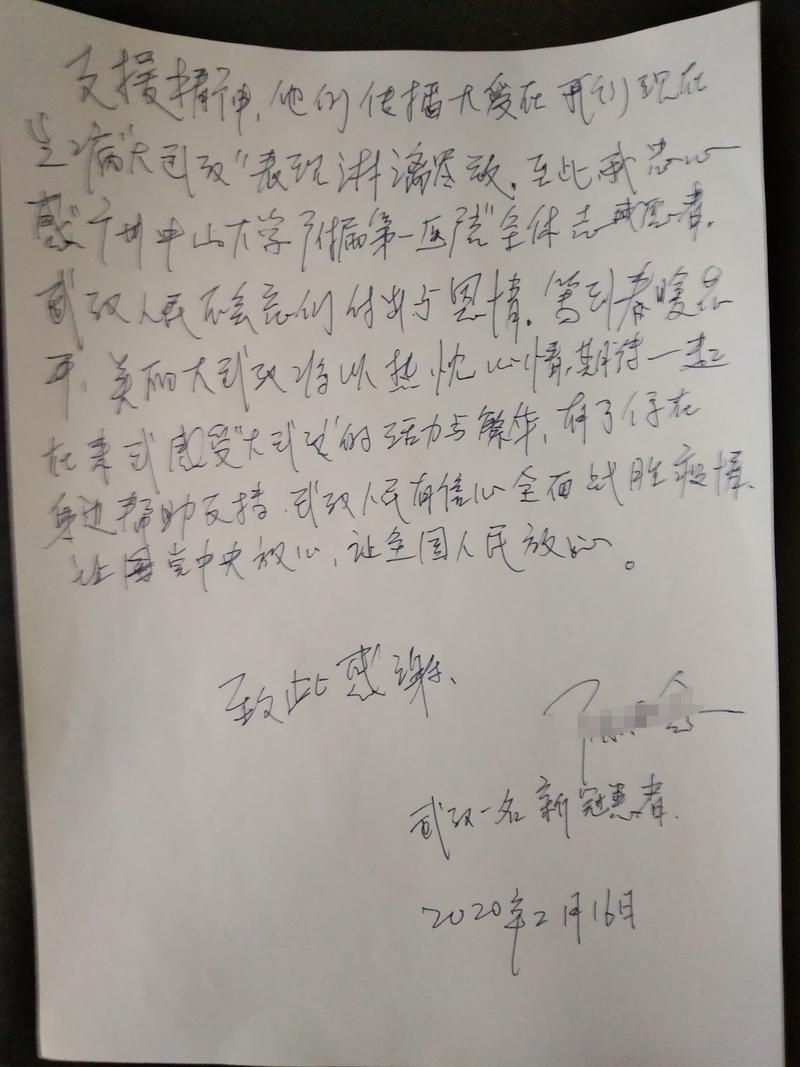 支援精神，他们传播大爱在我们现在
生病"大武汉"表现淋漓尽致，至此我忠心
感"广州中山大学附属第一医院"全体志愿者，
武汉人民不会忘们付出与恩情。等到春暖花
开，美丽大武汉将以热忱心情，期待一起
在来武感受"大武汉"的活力与繁华，有了你在
身边帮助支持，武汉人民有信心全面战胜疫情、
让国党中央放心，让全国人民放心。
致此感谢、
武汉一名新冠患者.
2020年2月16日